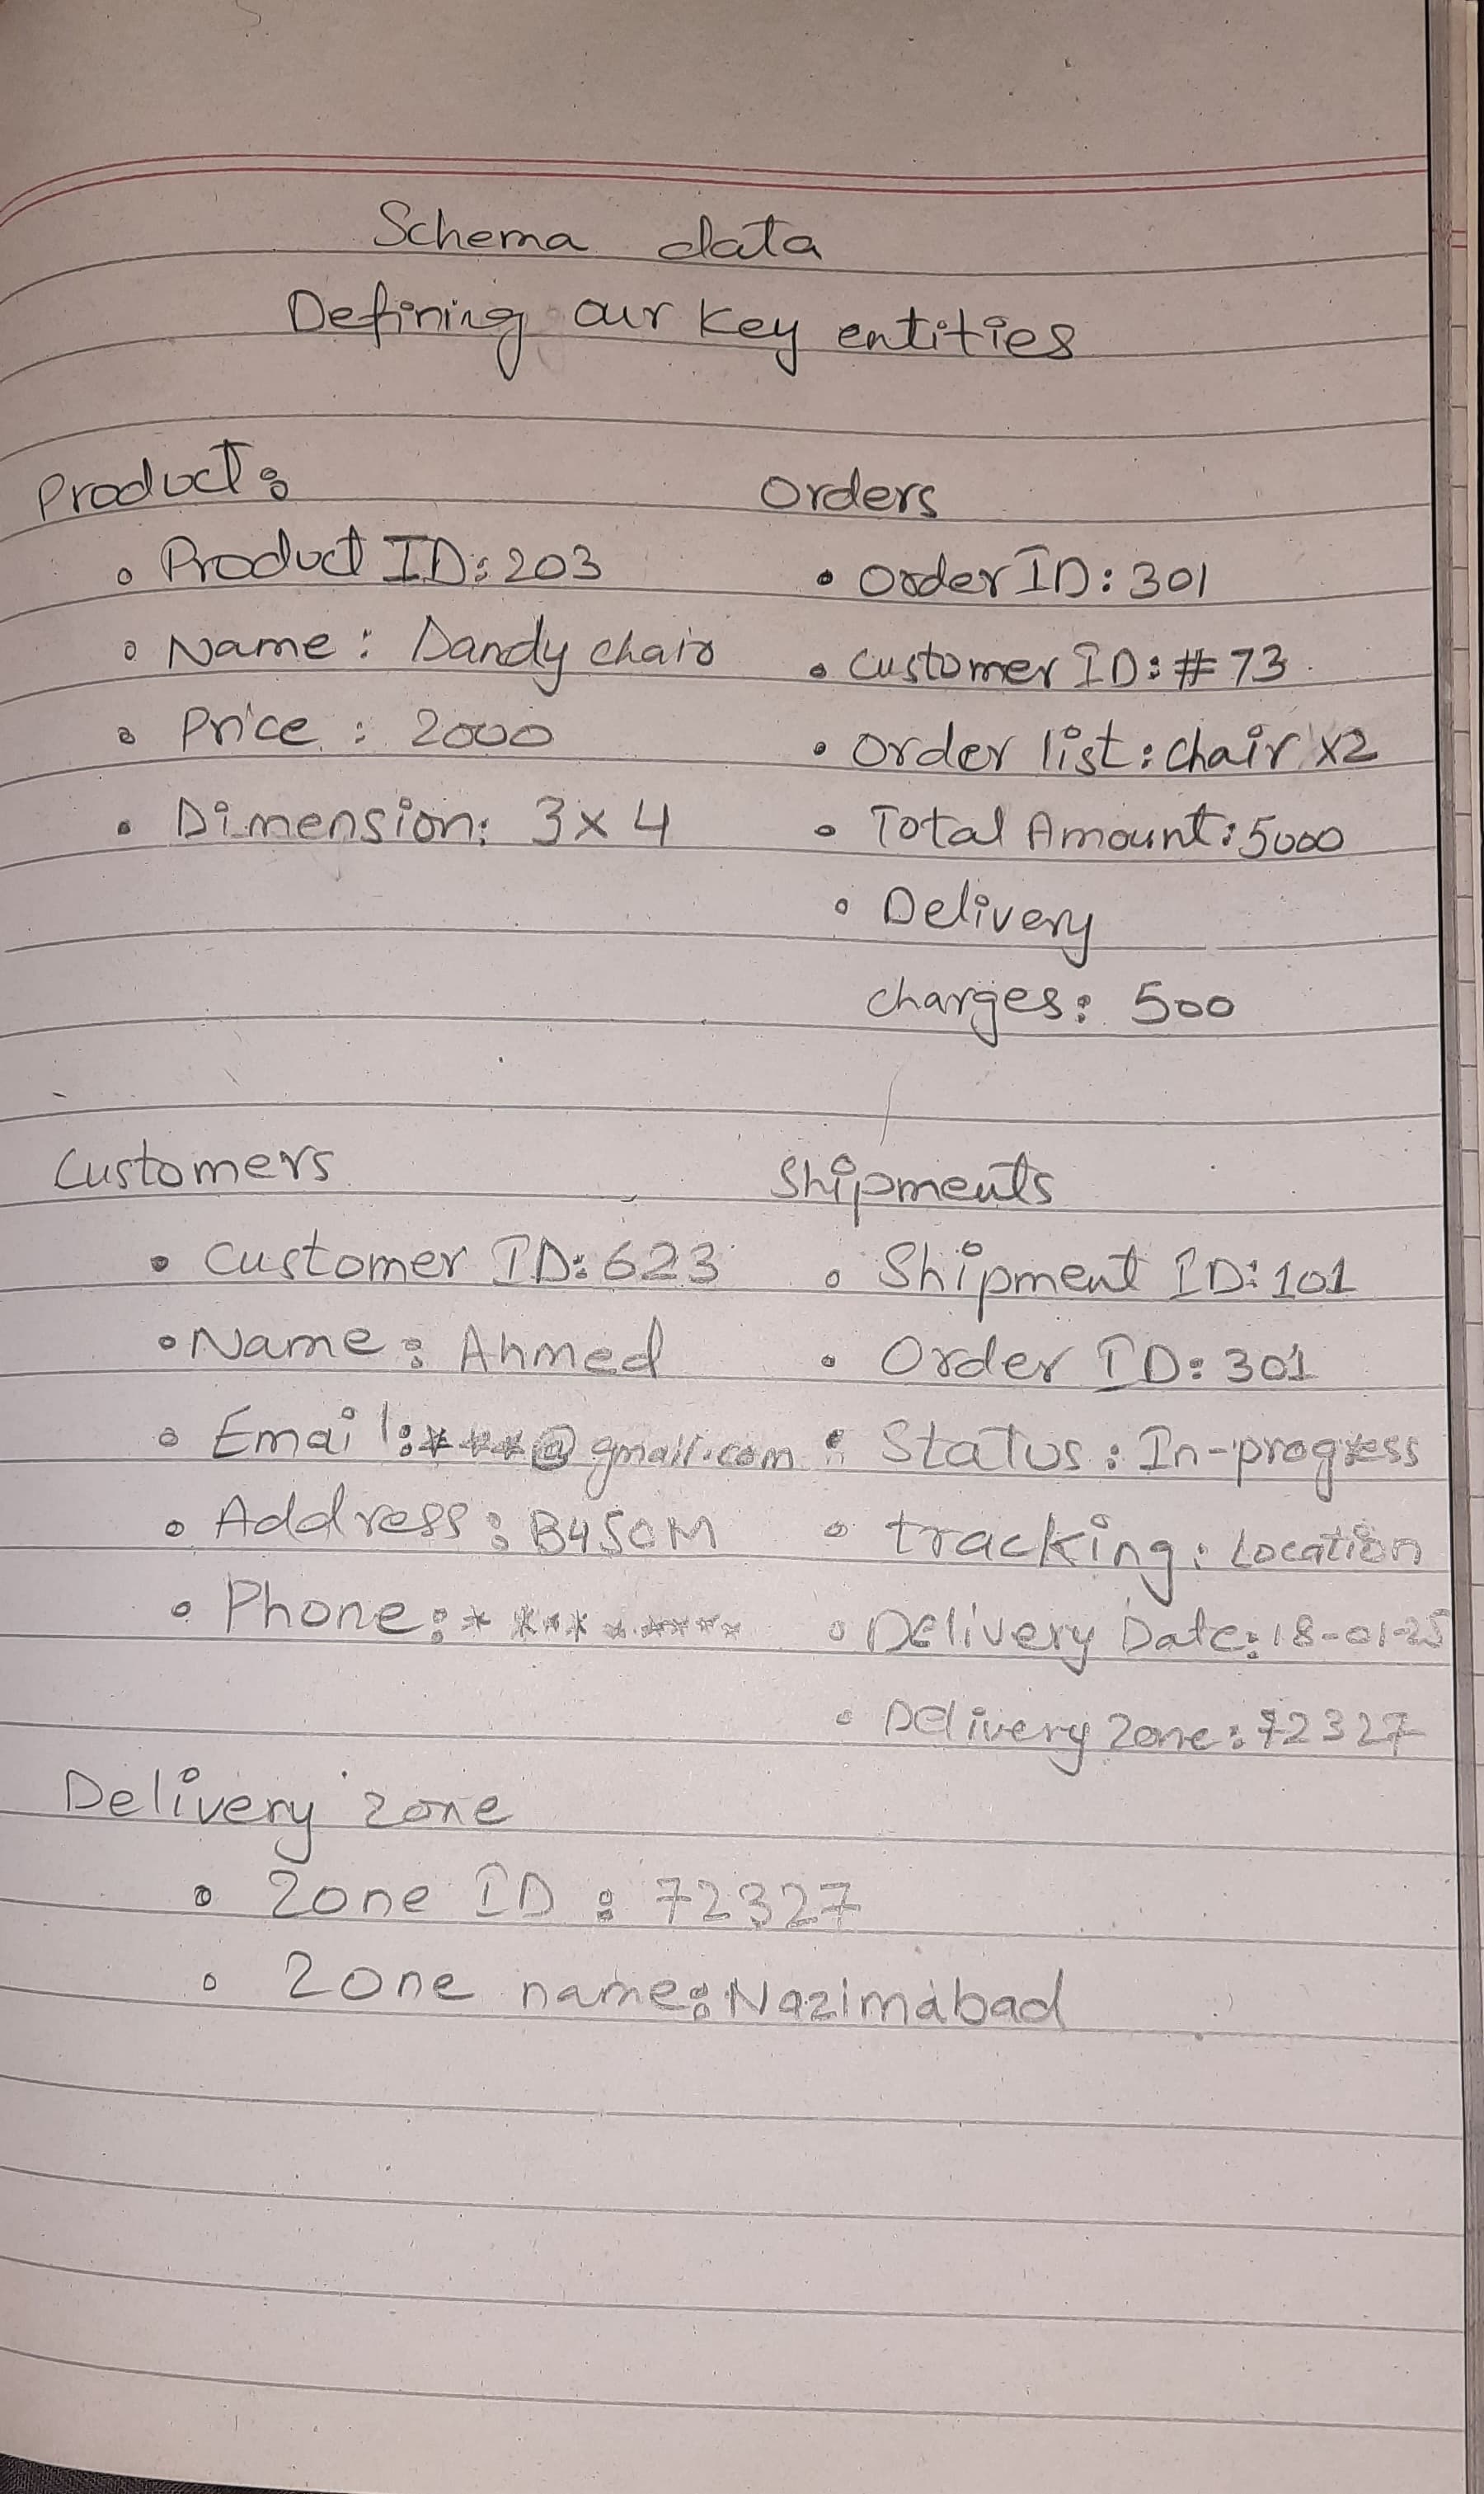 Schema data
Defining our key entities
Product:
• Product ID: 203
• Name: Dandy chair
• Price: 2000
• Dimension: 3x4
Orders
• Order ID: 301
• Customer ID: #73
• Order list: chair x2
• Total Amount: 5000
• Delivery
charges: 500
Customers
• Customer ID: 623
• Name: Ahmed
• Email: ***@gmail.com
• Address: B450M
• Phone: * *** *.****
Shipments
• Shipment ID: 101
• Order ID: 301
• Status: In-progress
• tracking: Location
• Delivery Date: 18-01-25
• Delivery Zone: 72327
Delivery zone
• Zone ID: 72327
• Zone name: Nazimabad